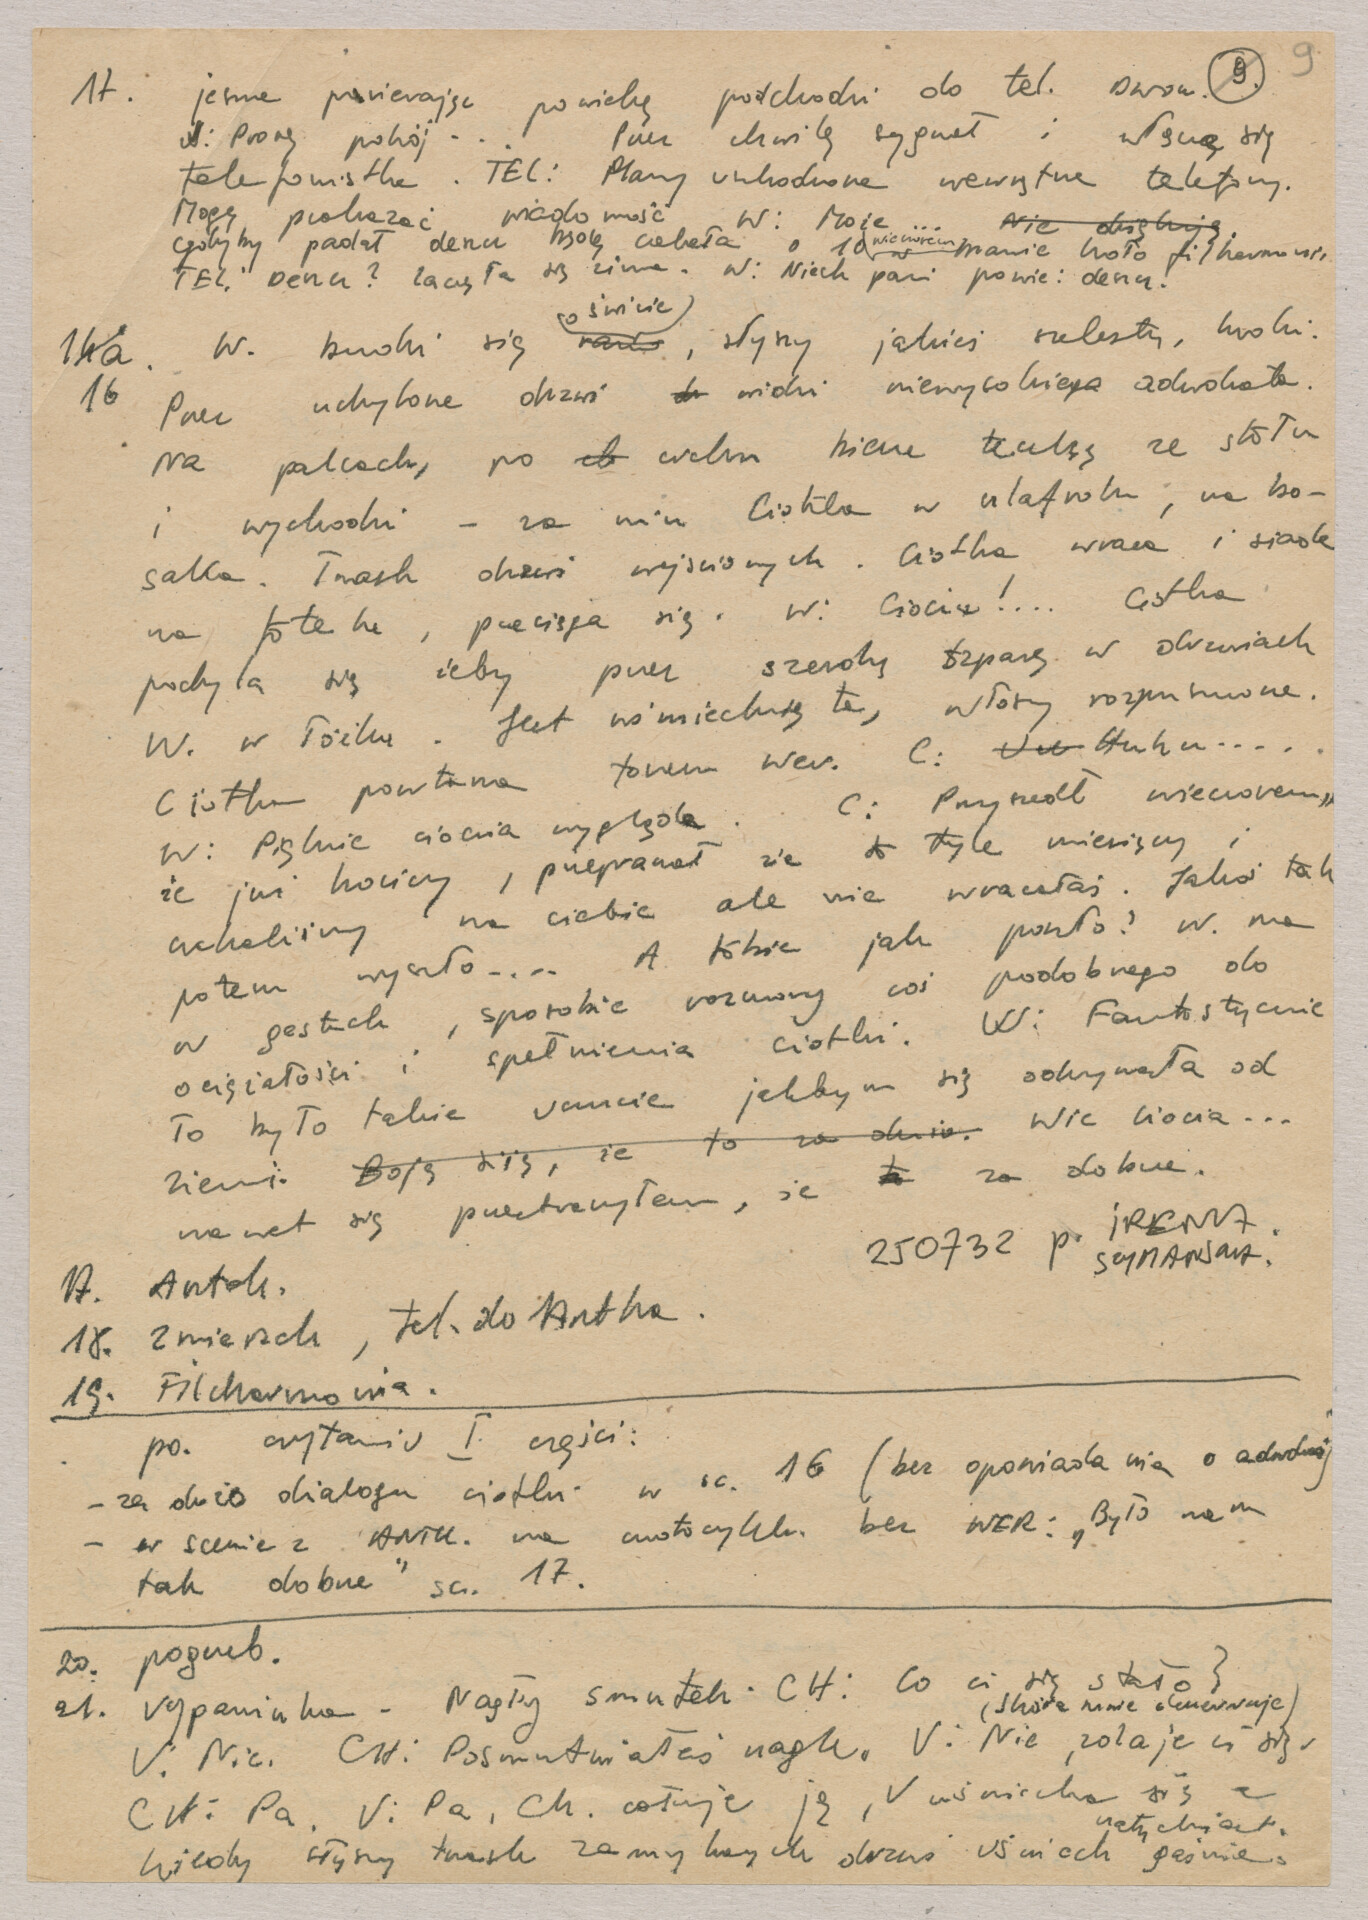 9. 9
17. jeszcze przecierając powiekę podchodzi do tel. Dzwon.
W: Proszę pokój... Przez chwilę sygnał i włącza się
telefonistka. TEL: Mamy uszkodzone wewnętrzne telefony.
Mogę przekazać wiadomość W: Może... Nie dziękuję.
gdyby padał deszcz będę czekała o 10 wieczorem w bramie koło filharmonii.
TEL: Deszcz? Zaczęła się zima. W: Niech pani powie: deszcz.
o świcie
14a. W. budzi się rano, słyszy jakieś szelesty, kroki.
16 Przez uchylone drzwi widzi niewysokiego adwokata.
Na palcach, po cichu bierze teczkę ze stołu
i wychodzi – za nim Ciotka w szlafroku, na bo-
saka. Trzask drzwi wejściowych. Ciotka wraca i siada
na fotelu, przeciąga się. W: Ciociu!... Ciotka
pochyla się żeby przez szeroką szparę w drzwiach
W. w łóżku. Jest uśmiechnięta, włosy rozpuszczone.
Ciotka powtarza tonem Wer. C: Huhu.....
W: Pięknie ciocia wygląda. C: Przyszedł wieczorem,
że już kończy, przepraszał że to tyle miesięcy i
czekaliśmy na ciebie ale nie wracałaś. Jakoś tak
potem wyszło.... A tobie jak poszło? W. ma
w gestach, sposobie rozmowy coś podobnego do
ociężałości i spełnienia ciotki. W: Fantastycznie
To było takie uczucie jakbym się odrywała od
ziemi. Boję się, że to za dużo. Wie ciocia...
nawet się przestraszyłam, że to za dobrze.
250732 p. IRENA
SZYMAŃSKA.
17. Antek.
18. Zmierzch, tel. do Antka.
19. Filcharmonia.
po. czytaniu I części:
– za dużo dialogu ciotki w sc. 16 (bez opowiadania o adwokacie)
– w scenie z ANTK. na motocyklu bez WER: „Było nam
tak dobrze" sc. 17.
20. pogrzeb.
21. Wypaninka – Nagły smutek. CH: Co ci się stało?
(Skóra mnie denerwuje)
V: Nic. CH: Posmutniałaś nagle. V: Nie, zdaje ci się.
CH: Pa. V: Pa, Ch. całuje ją, V uśmiecha się a
natychmiast.
kiedy słyszy trzask zamykanych drzwi uśmiech gaśnie.